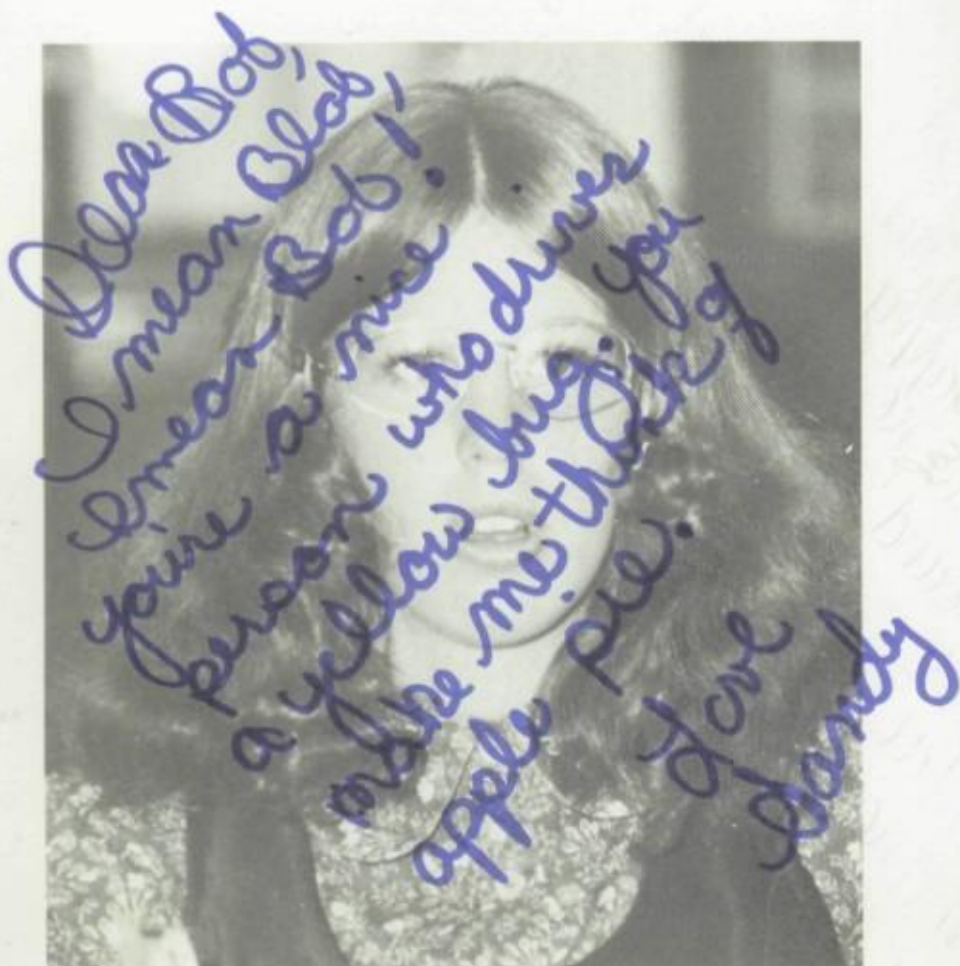 Dear Bob,
I mean Blob,
I mean Bob!
you're a nice
person who drives
a yellow bug. you
make me think of
apple pie.
Love
Sandy